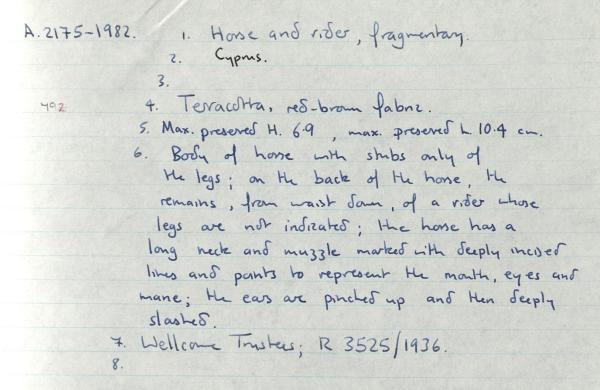 A.2175-1982. 1. Horse and rider, fragmentary.
2. Cyprus.
3.
492 4. Terracotta, red-brown fabric.
5. Max. preserved H. 6.9, max. preserved L. 10.4 cm.
6. Body of horse with stubs only of
the legs; on the back of the horse, the
remains, from waist down, of a rider whose
legs are not indicated; the horse has a
long neck and muzzle marked with deeply incised
lines and points to represent the mouth, eyes and
mane; the ears are pinched up and then deeply
slashed.
7. Wellcome Trustees; R 3525/1936.
8.